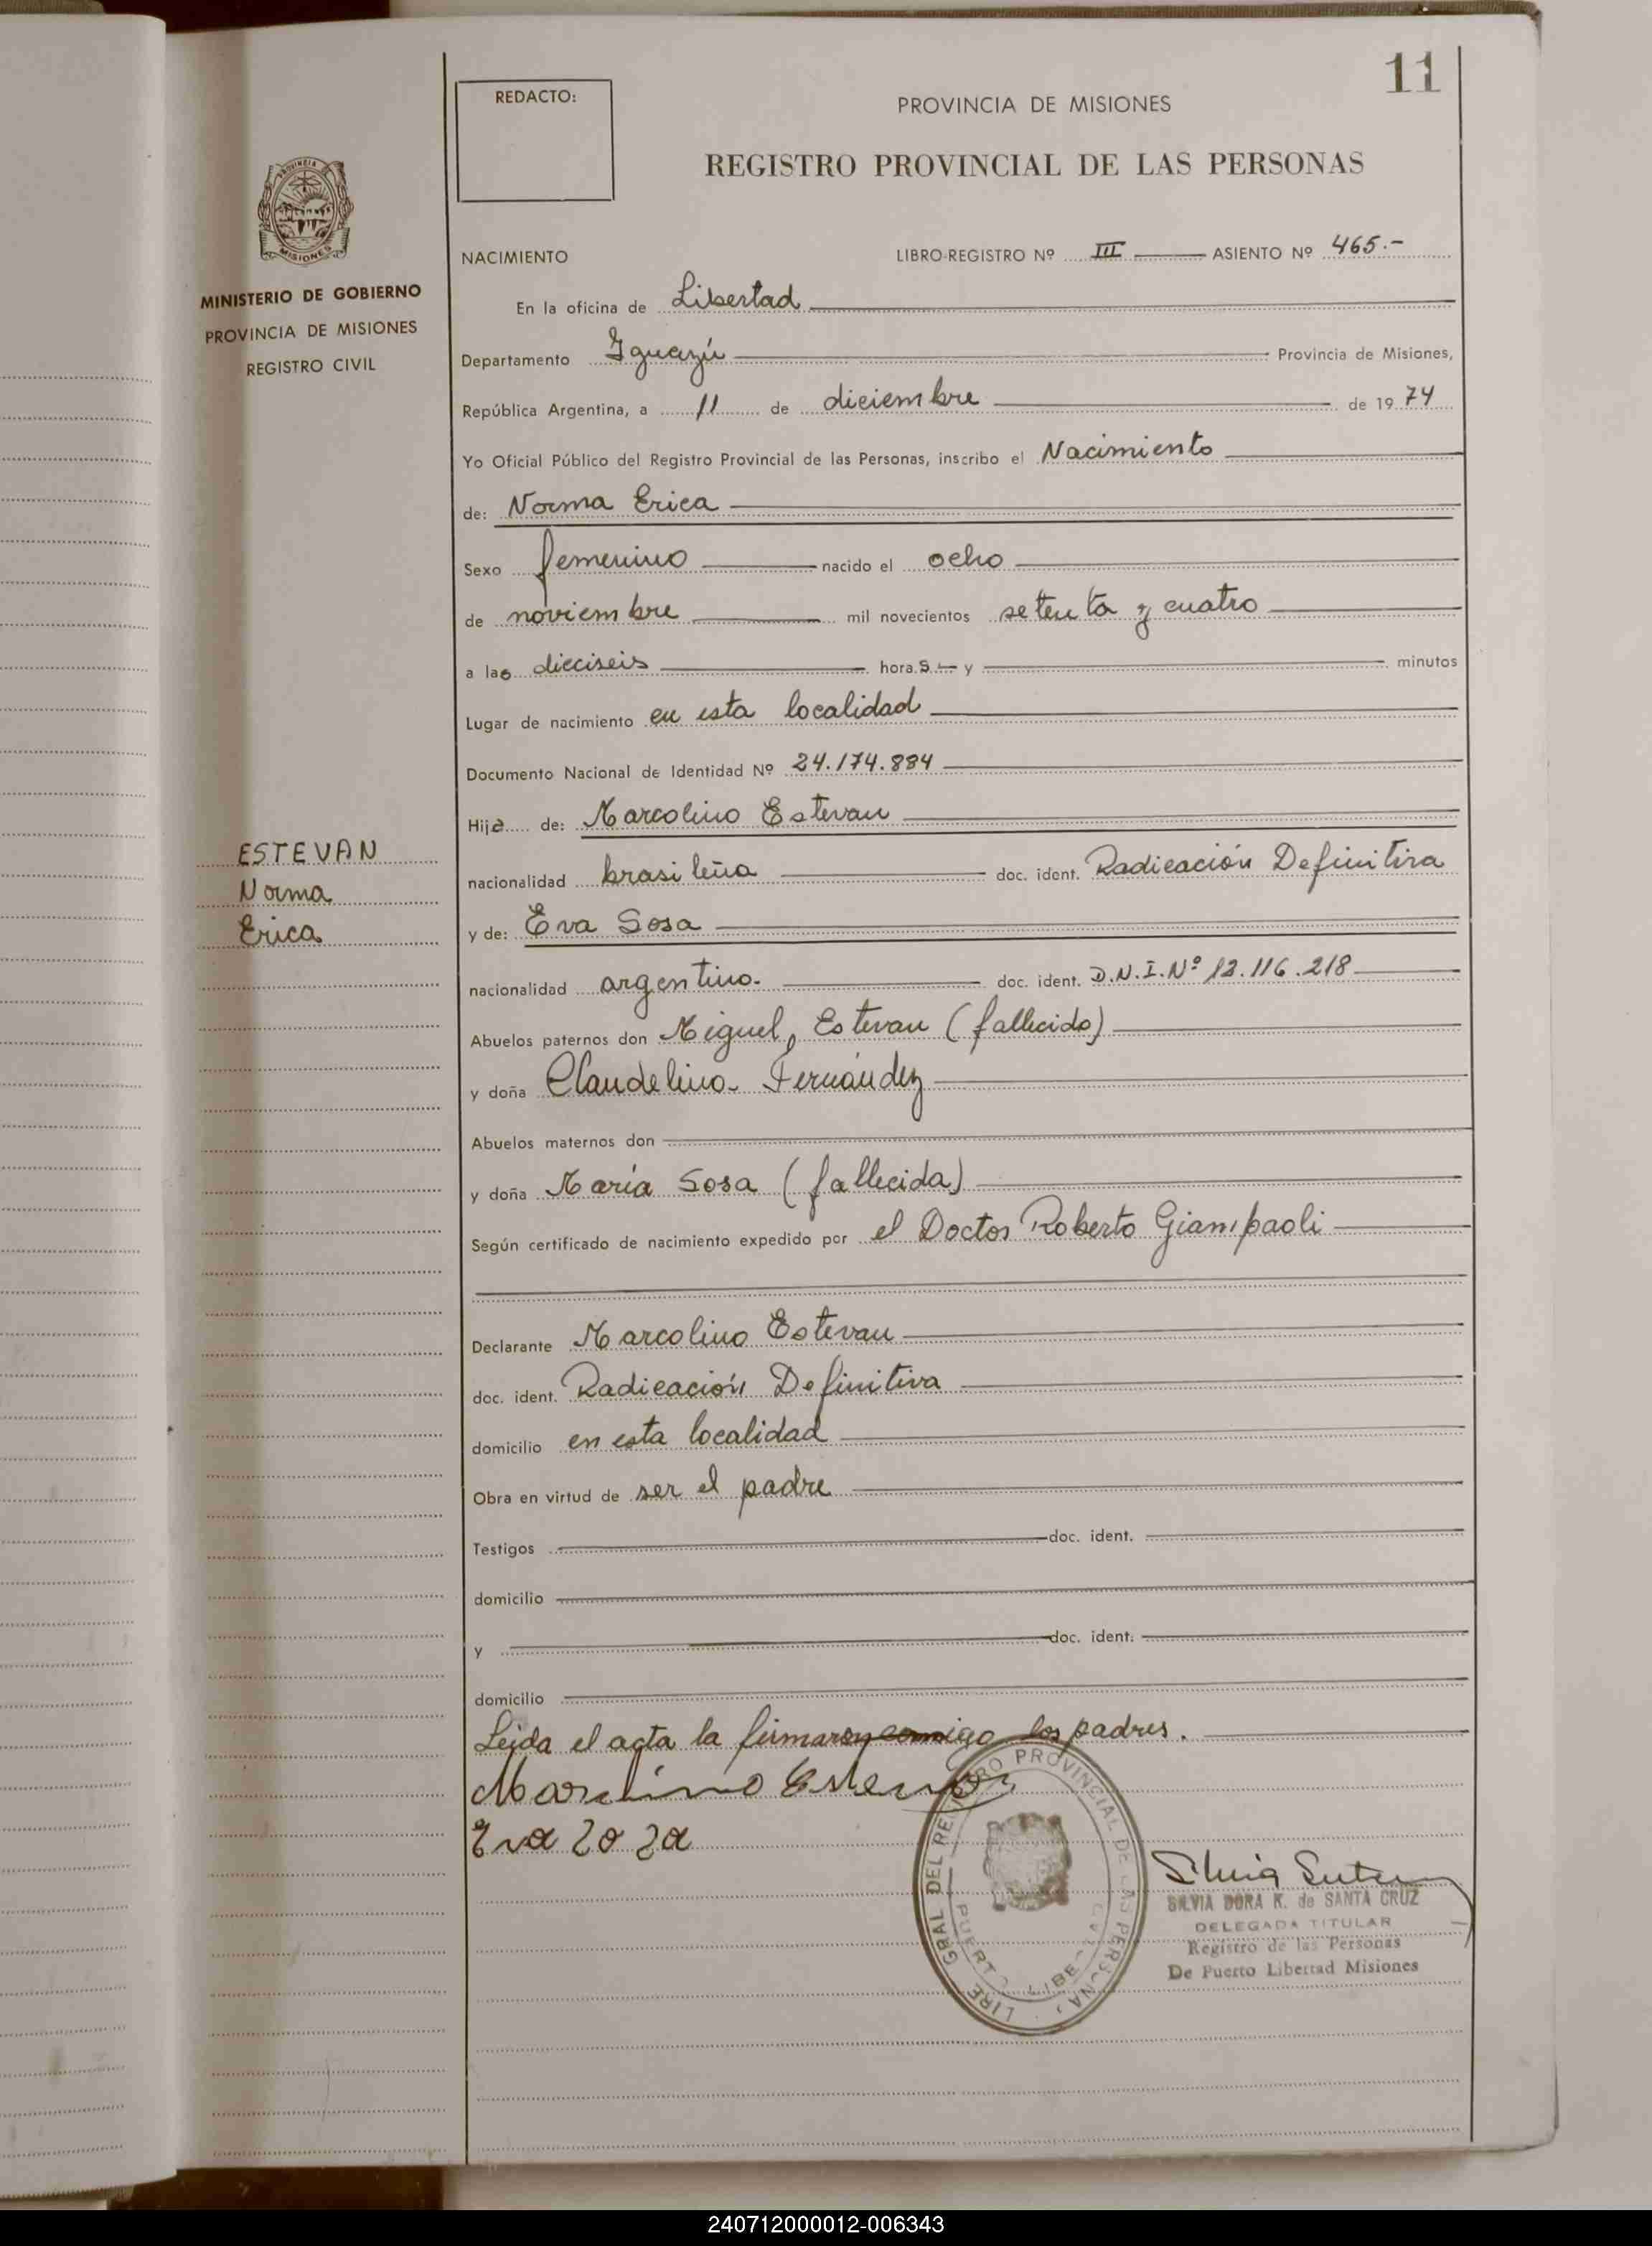 11
REDACTO:
PROVINCIA DE MISIONES
REGISTRO PROVINCIAL DE LAS PERSONAS
PROVINCIA
MISIONES
MINISTERIO DE GOBIERNO
PROVINCIA DE MISIONES
REGISTRO CIVIL
NACIMIENTO LIBRO-REGISTRO Nº III ASIENTO Nº 465.-
En la oficina de Libertad
Departamento Iguazú Provincia de Misiones,
República Argentina, a 11 de diciembre de 1974
Yo Oficial Público del Registro Provincial de las Personas, inscribo el Nacimiento
de: Norma Erica
Sexo femenino nacido el ocho
de noviembre mil novecientos setenta y cuatro
a las dieciseis hora s y minutos
Lugar de nacimiento en esta localidad
Documento Nacional de Identidad Nº 24.174.884
Hija de: Marcolino Estevan
ESTEVAN
Norma
Erica
nacionalidad brasileña doc. ident. Radicación Definitiva
y de: Eva Sosa
nacionalidad argentina. doc. ident. D.N.I. Nº 13.116.218
Abuelos paternos don Miguel Estevan (fallecido)
y doña Claudelina Fernández
Abuelos maternos don
y doña María Sosa (fallecida)
Según certificado de nacimiento expedido por el Doctor Roberto Giampaoli
Declarante Marcolino Estevan
doc. ident. Radicación Definitiva
domicilio en esta localidad
Obra en virtud de ser el padre
Testigos doc. ident.
domicilio
y doc. ident.
domicilio
Leida el acta la firmaron conmigo los padres.
Marcolino Estevan
Eva Soza
DIRE GRAL DEL REGISTRO PROVINCIAL DE LAS PERSONAS
PUERTO LIBERTAD
SILVIA DORA K. de SANTA CRUZ
DELEGADA TITULAR
Registro de las Personas
De Puerto Libertad Misiones
240712000012-006343